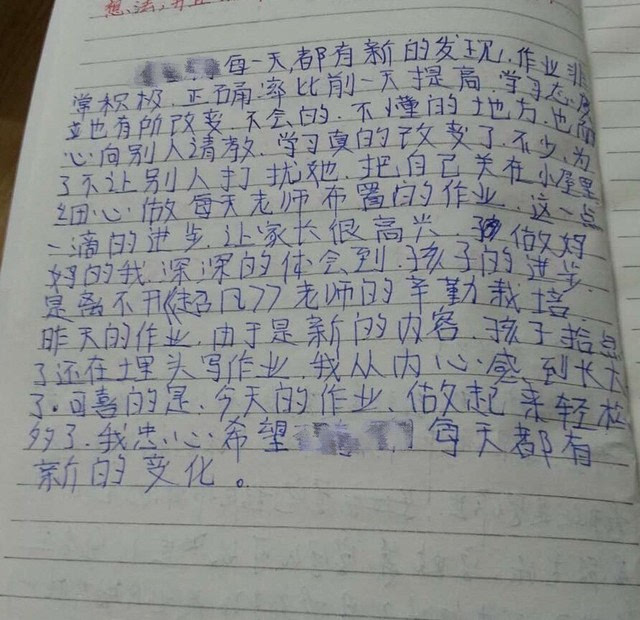 想法,并且
每一天,都有新的发现,作业非
常积极,正确率比前一天提高,学习态度
也有所改变,不会的,不懂的地方,也耐
心向别人请教,学习真的改变了不少,为
了不让别人打扰她,把自己关在小屋里
细心做每天老师布置的作业,这一点
一滴的进步,让家长很高兴,做妈
妈的我,深深的体会到,孩子的进步
是离不开《超凡》老师的辛勤栽培,
昨天的作业,由于是新的内容,孩子拾点
了还在埋头写作业,我从内心感到长大
了,可喜的是,今天的作业,做起来轻松
多了,我忠心希望 每天都有
新的变化。